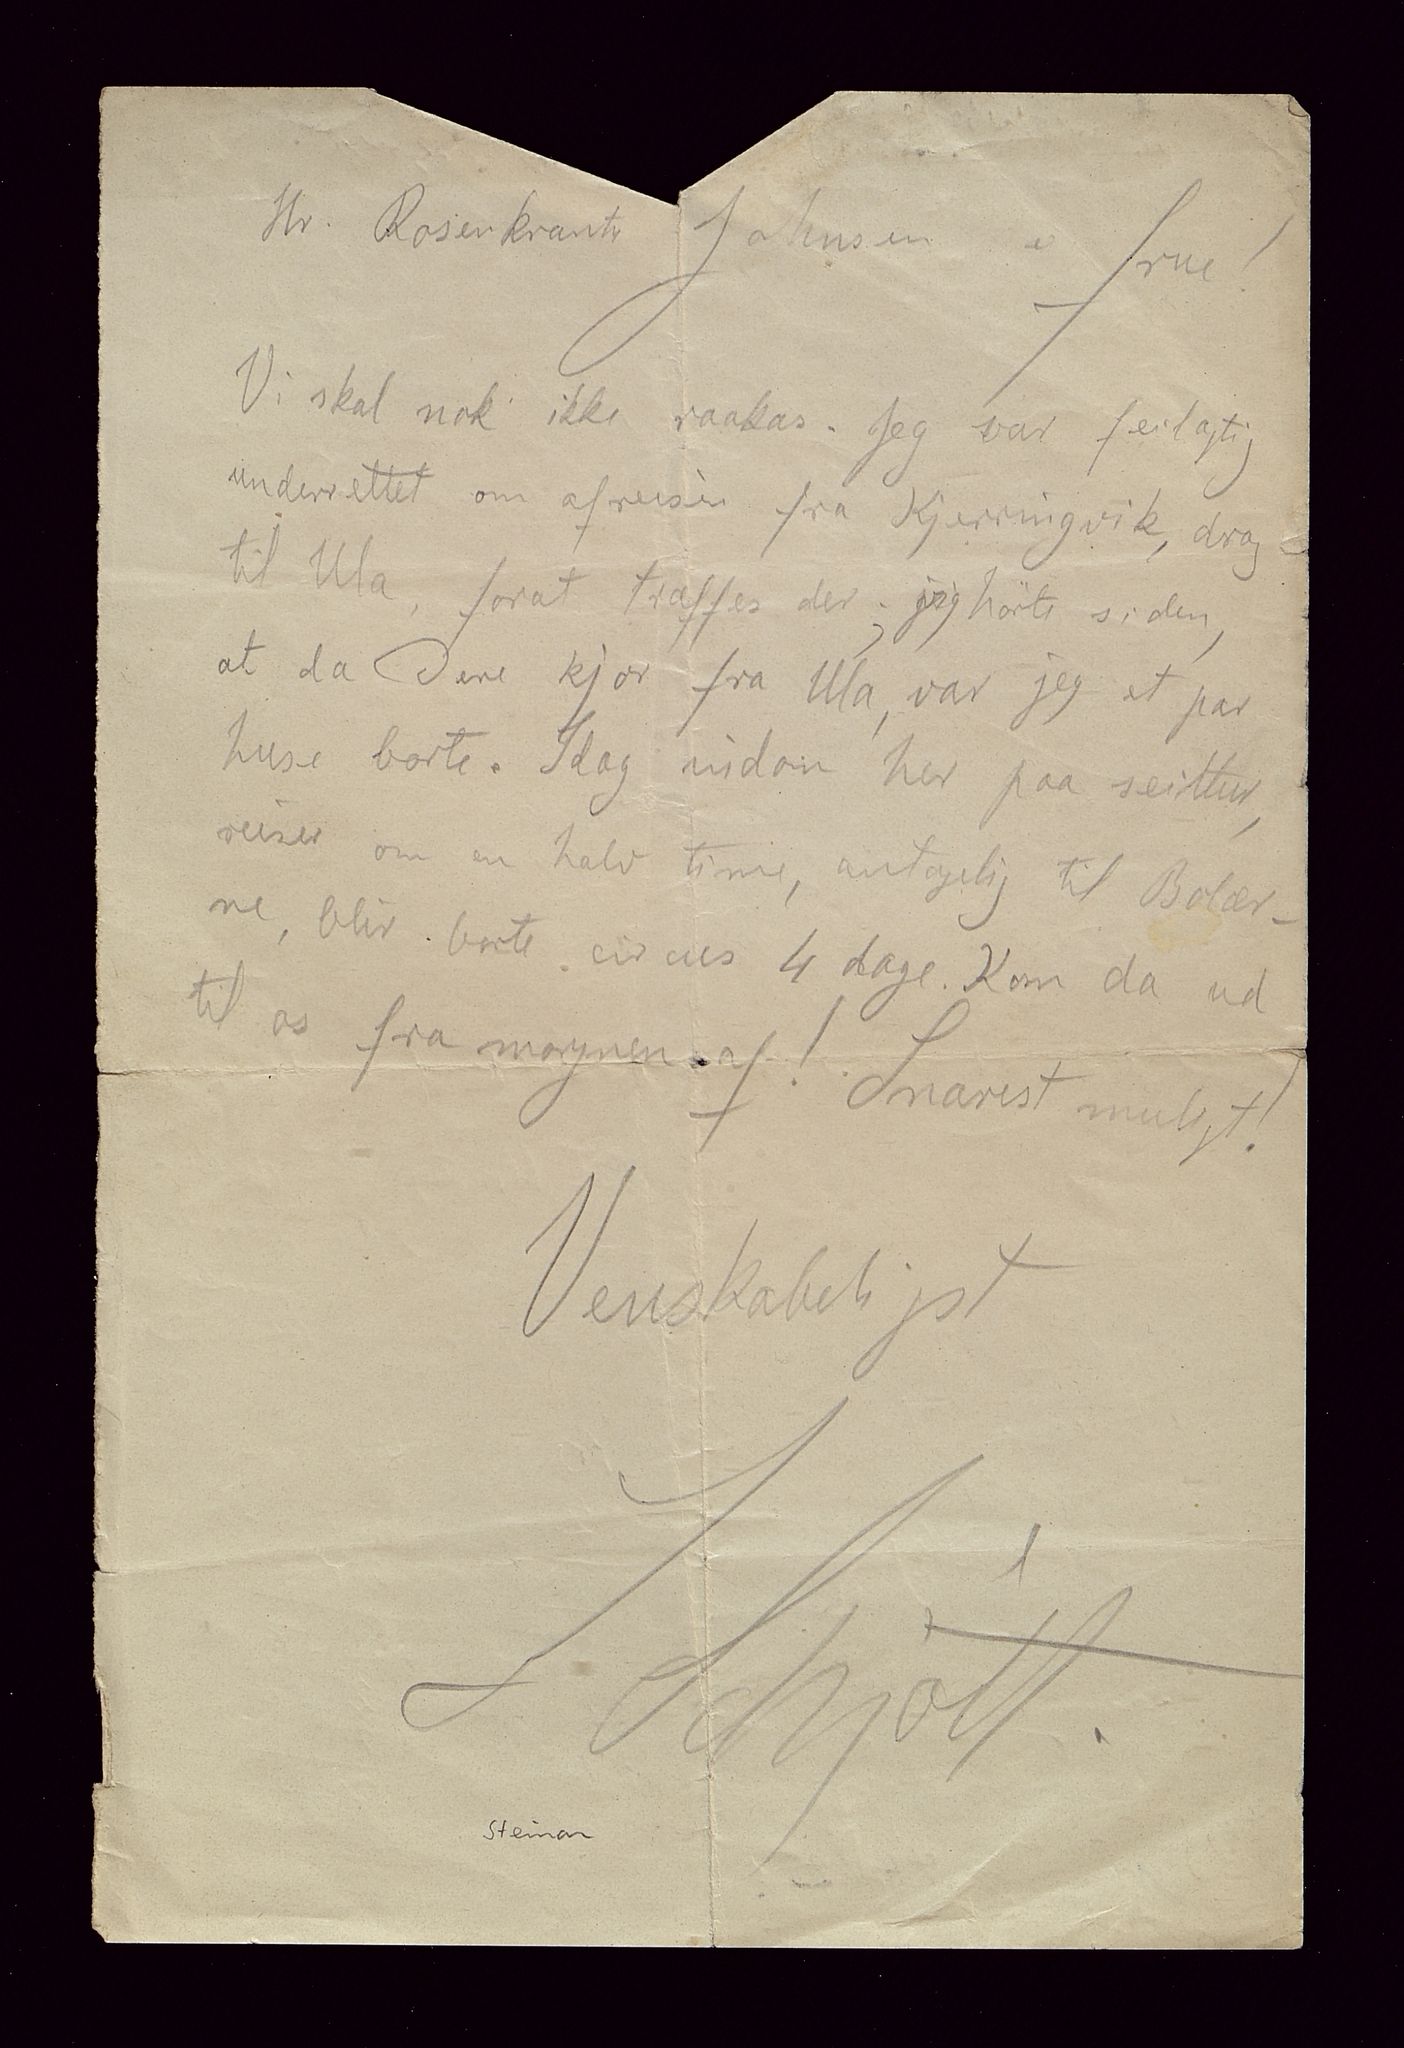 Hr. Rosenkrantz Johnsen & frue!
Vi skal nok ikke raakas. Jeg var feilagtig
underrettet om afreisen fra Kjerringvik, drog
til Ula, forat træffes der; jeg hörte siden,
at da Dere kjör fra Ula, var jeg et par
huse borte. Idag indom her paa seiltur,
reiser om en halv time, antagelig til Bolær-
ne, blir borte circus 4 dage. Kom da ud
til os fra morgnen af! Snarest muligt!
Venskabeligst
S. Schjött.
Steinar